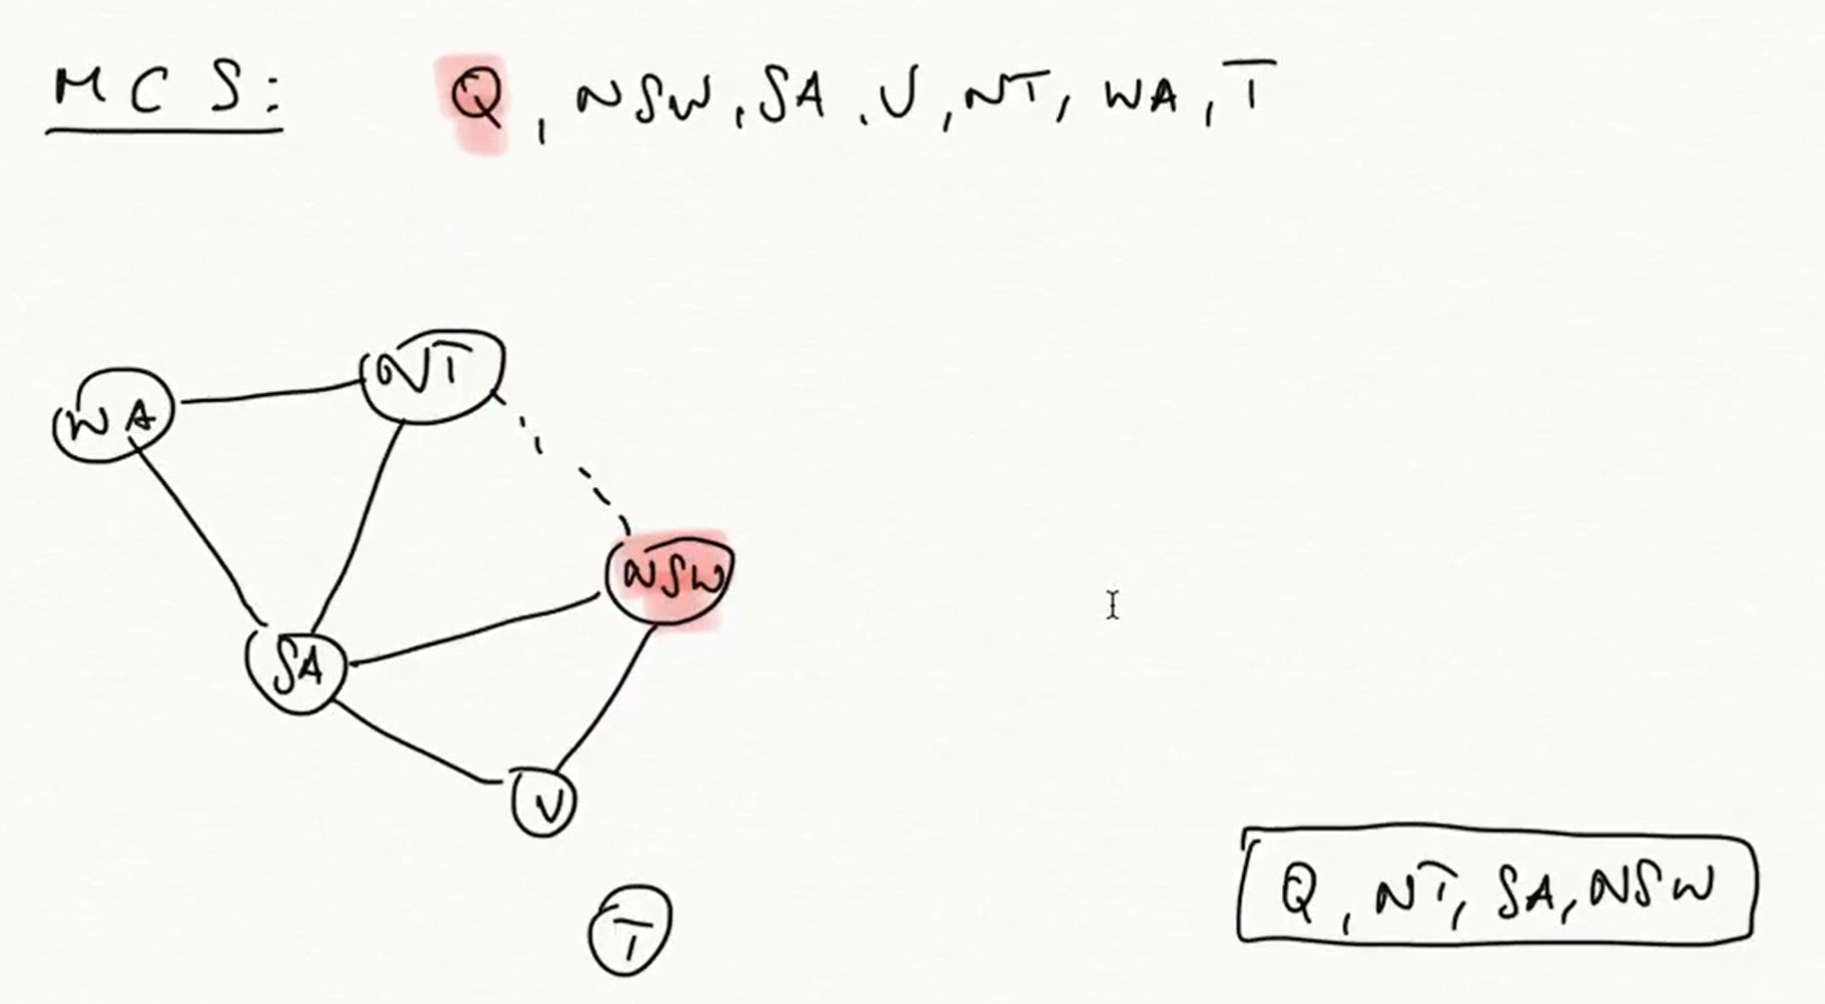 MCS: Q, NSW, SA, V, NT, WA, T
NT
WA
NSW
SA
V
T
Q, NT, SA, NSW